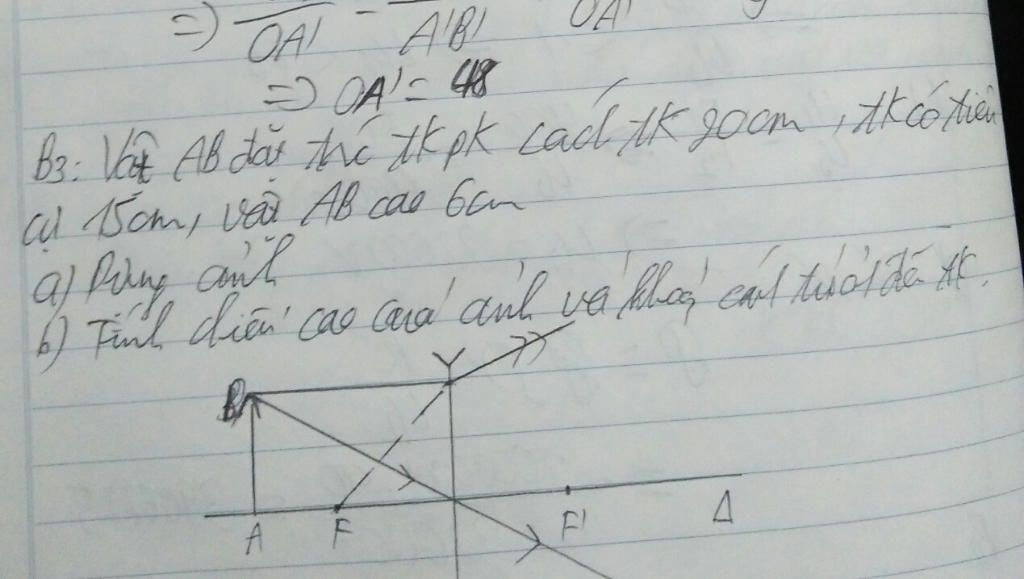 => OA' - A'B' OA'
=> OA' = 48
B3: Vật AB đặt trc tkpk cách tk 20cm, tk có tiêu
cự 15cm, vật AB cao 6cm
a) Dựng ảnh
b) Tính chiều cao của ảnh và khoảng cách từ ảnh đến tk.
B
A F F' Δ